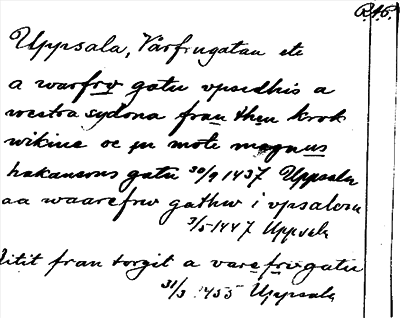 R.A.P.
Uppsala, Vårfrugatan etc
a warfrv gatu vpsedhis a
westra sydona fran them krok
wikine oc jn mote magnus
hakansons gatu 30/9 1437 Uppsala
aa waarefrw gathw i vpsalom
3/5 1447 Uppsala
litit fran torgit a varefrvgatu
31/3 1455 Uppsala